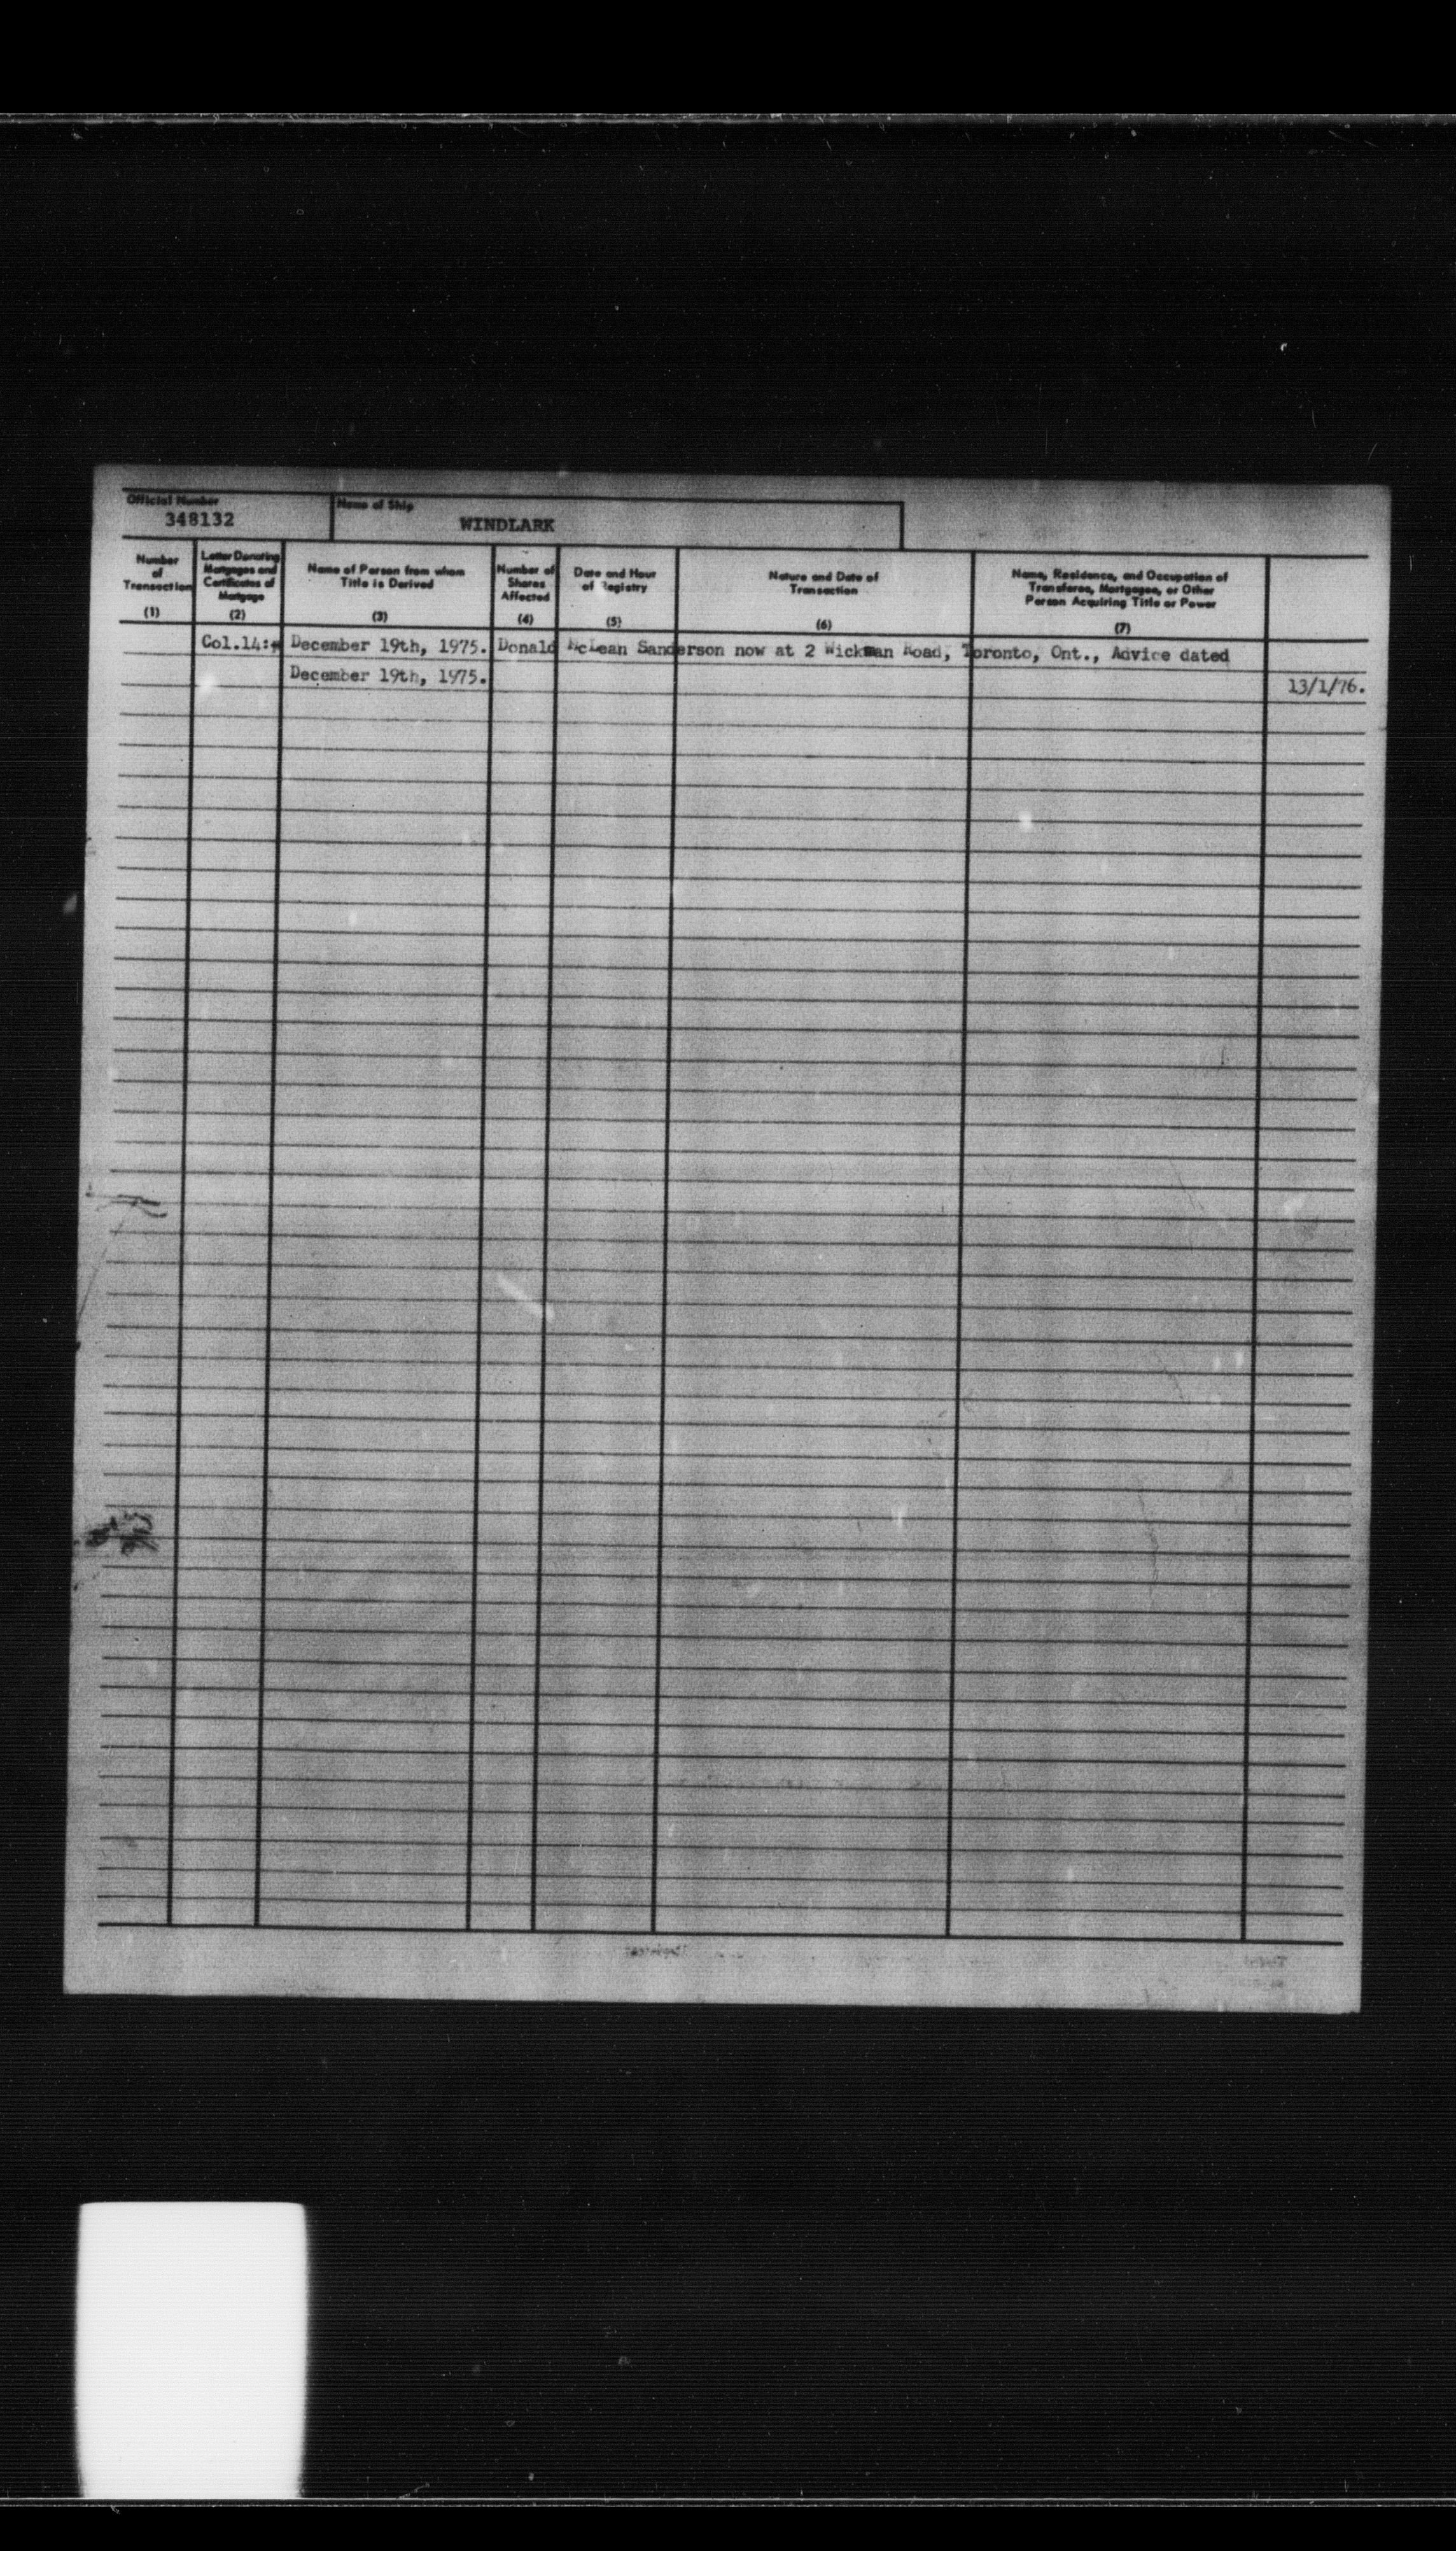 Official Number
348132
Name of Ship
WINDLARK
Number
of
Transaction
(1)
Letter Denoting
Mortgages and
Certificates of
Mortgage
(2)
Name of Person from whom
Title is Derived
(3)
Number of
Shares
Affected
(4)
Date and Hour
of Registry
(5)
Nature and Date of
Transaction
(6)
Name, Residence, and Occupation of
Transferee, Mortgagee, or Other
Person Acquiring Title or Power
(7)
Col.14: December 19th, 1975. Donald McLean Sanderson now at 2 Wickman Road, Toronto, Ont., Advice dated
December 19th, 1975. 13/1/76.